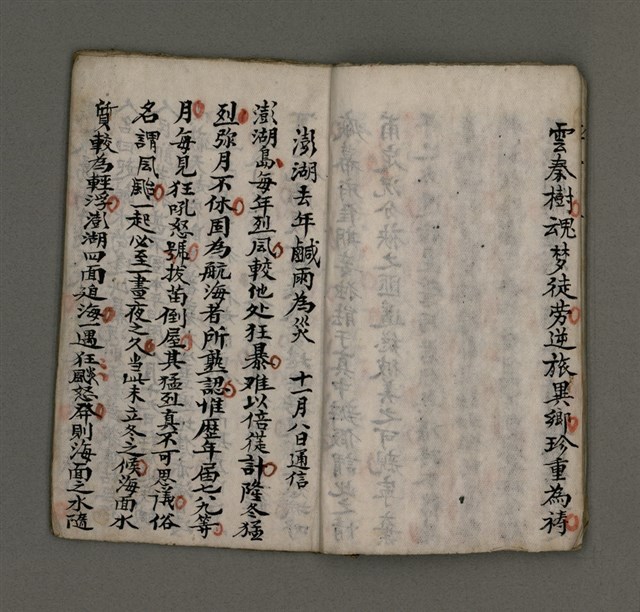 雲秦樹魂梦徒劳逆旅異鄉珍重為禱
澎湖去年鹹雨為災　十一月八日通信
澎湖島每年烈風較他处狂暴难以倍蓰計隆冬猛
烈弥月不休固為航海者所熟認惟歷年屆七八九等
月每見狂吼怒號拔苗倒屋其猛烈真不可思議俗
名謂風颱一起必至一晝夜之久当此未立冬之候海面水
質較為輕浮澎湖四面迫海一遇狂颷怒奔則海面之水隨